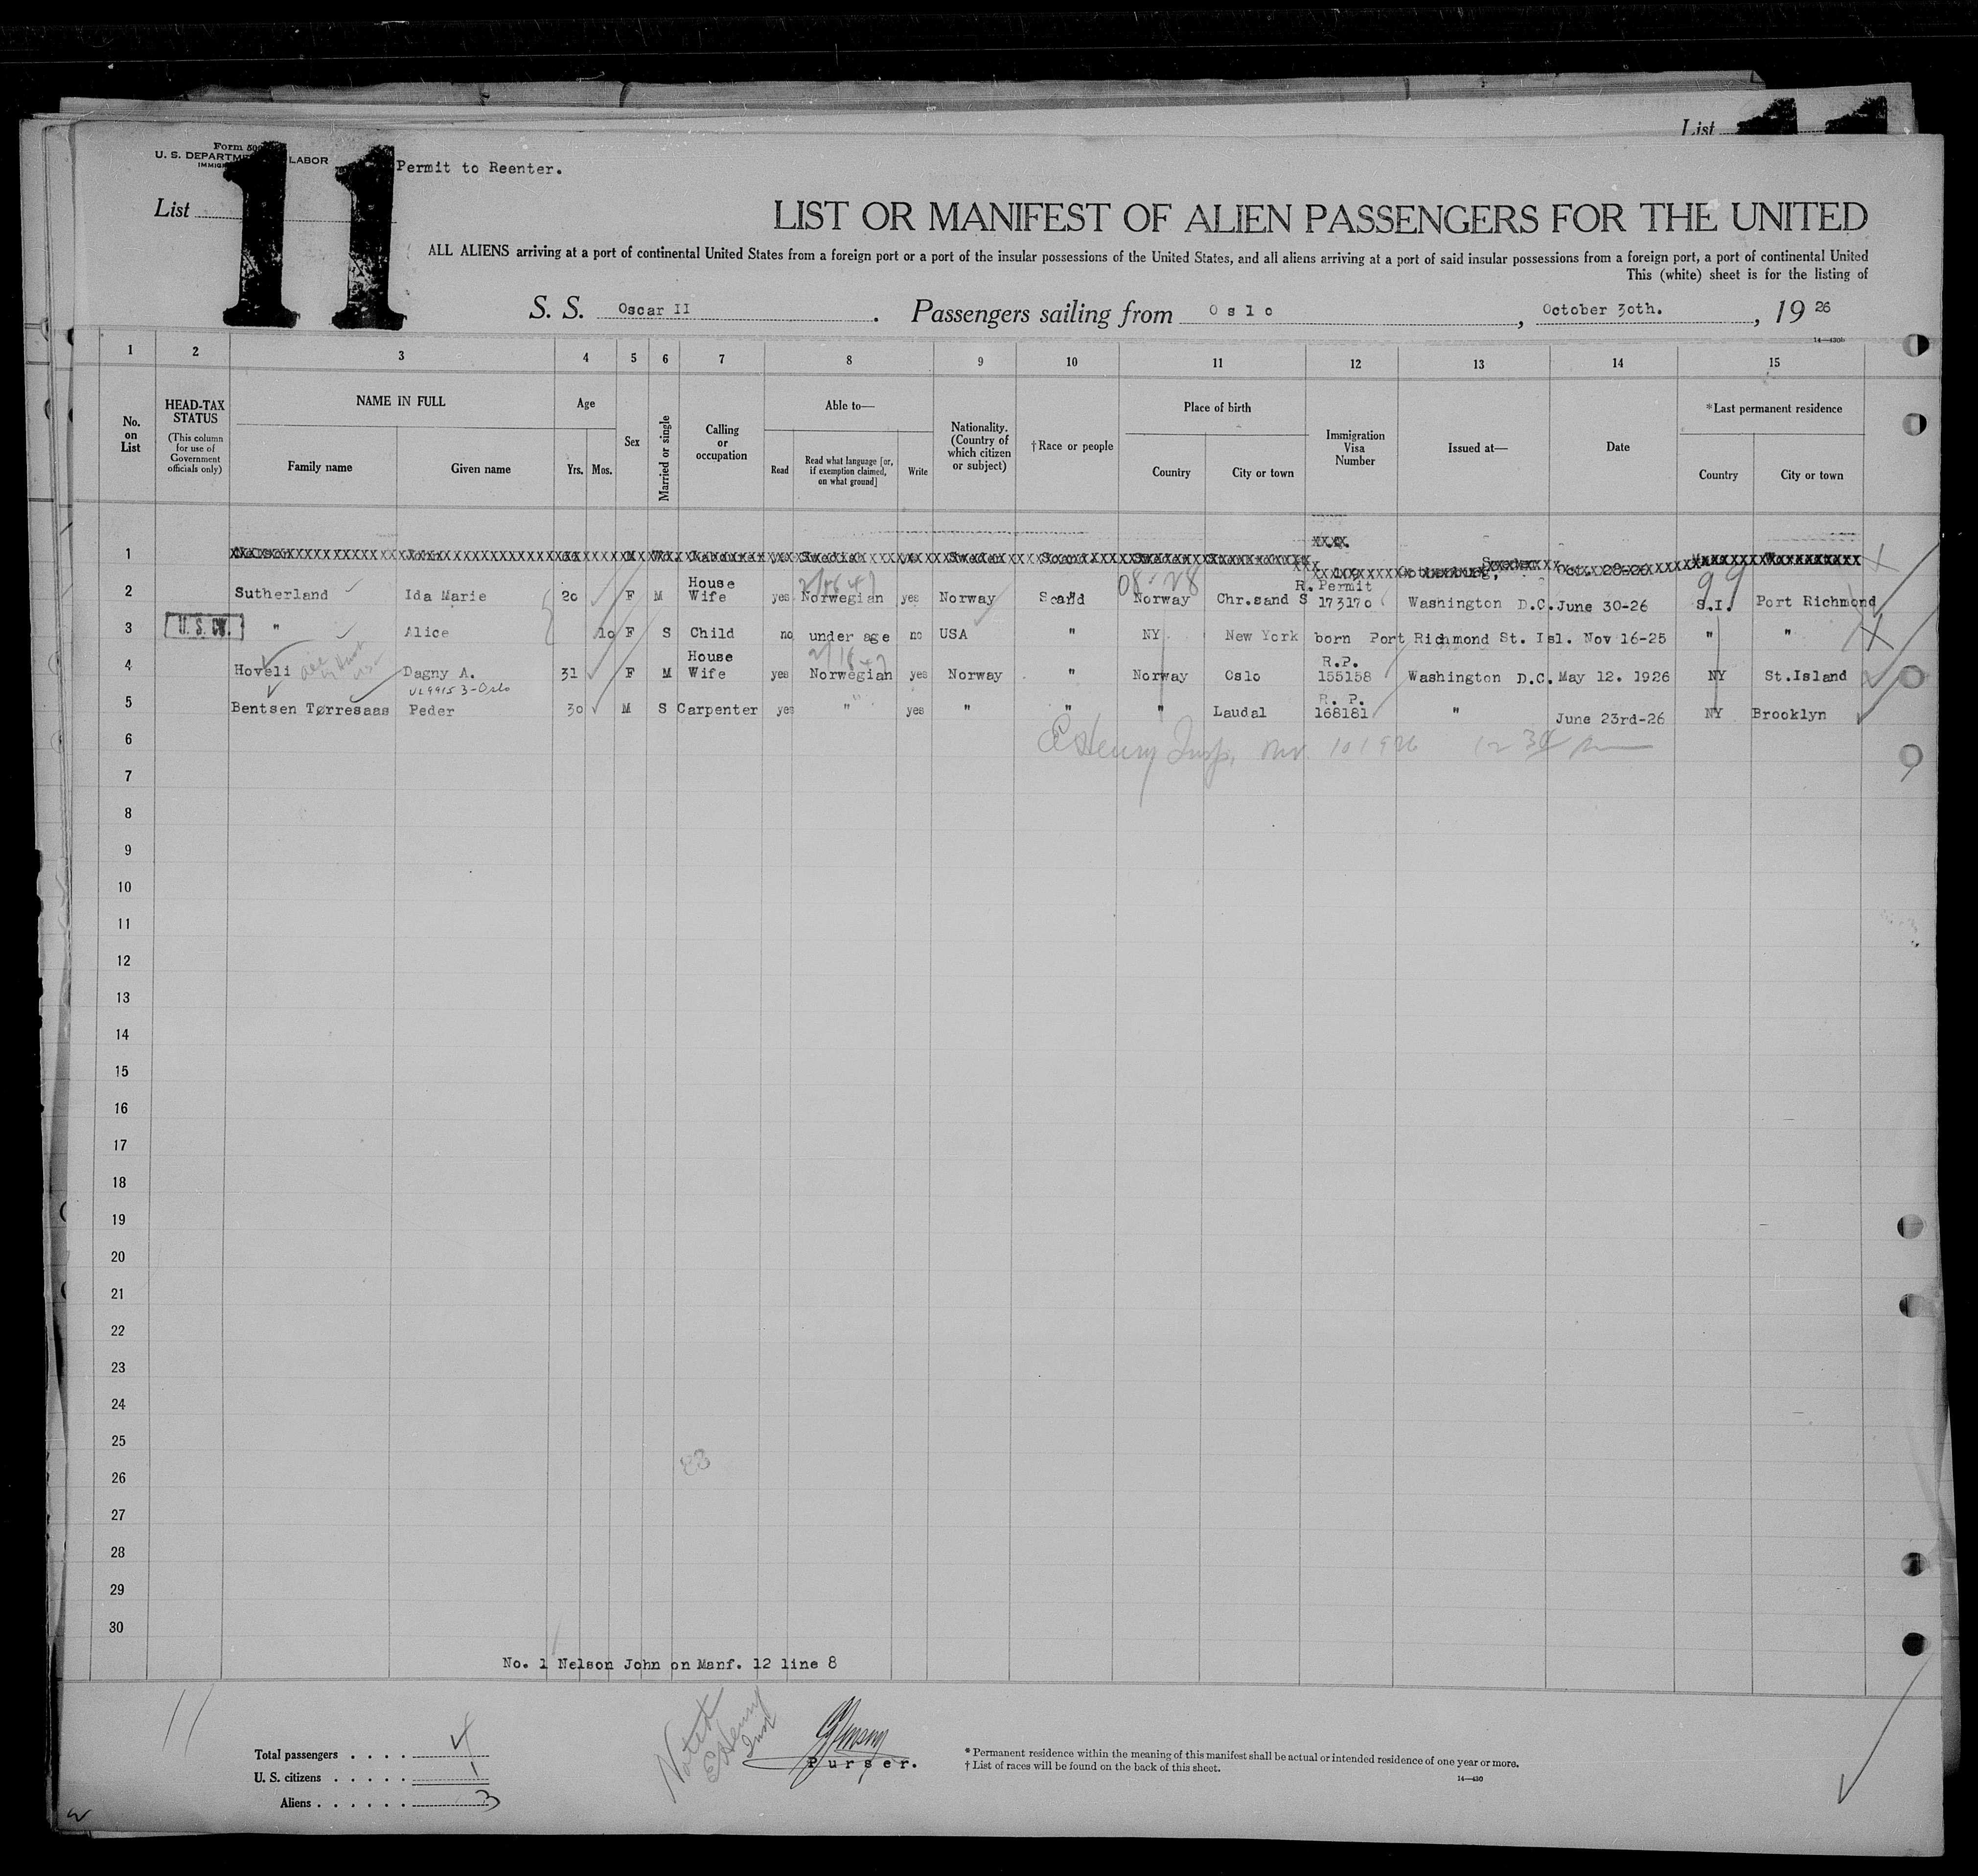 List
Form 50
U. S. DEPARTM LABOR
IMMIG
Permit to Reenter.
List 11
LIST OR MANIFEST OF ALIEN PASSENGERS FOR THE UNITED
ALL ALIENS arriving at a port of continental United States from a foreign port or a port of the insular possessions of the United States, and all aliens arriving at a port of said insular possessions from a foreign port, a port of continental United
This (white) sheet is for the listing of
S. S. Oscar II. Passengers sailing from Oslo, October 30th., 1926
14—430b
1 2 3 4 5 6 7 8 9 10 11 12 13 14 15
No. on List
HEAD-TAX STATUS
(This column for use of Government officials only)
NAME IN FULL
Family name Given name
Age
Yrs. Mos.
Sex
Married or single
Calling or occupation
Able to—
Read Read what language [or, if exemption claimed, on what ground] Write
Nationality. (Country of which citizen or subject)
†Race or people
Place of birth
Country City or town
Immigration Visa Number
Issued at—
Date
*Last permanent residence
Country City or town
1
2 Sutherland Ida Marie 20 F M House Wife yes Norwegian yes Norway Scand Norway Chr.sand S R. Permit 173170 Washington D.C. June 30-26 S.I. Port Richmond
08-28 99
3 U. S. CIT. " Alice 10 F S Child no under age no USA " NY New York born Port Richmond St. Isl. Nov 16-25 " "
4 Hoveli Dagny A. 31 F M House Wife yes Norwegian yes Norway " Norway Oslo R.P. 155158 Washington D.C. May 12. 1926 NY St.Island
5 Bentsen Tørresaas Peder 30 M S Carpenter yes " yes " " " Laudal R. P. 168181 " June 23rd-26 NY Brooklyn
6 E Henry Insp. Nov. 10 1926 12 30
7
8
9
10
11
12
13
14
15
16
17
18
19
20
21
22
23
24
25
26
27
28
29
30
No. 1 Nelson John on Manf. 12 line 8
11
Total passengers . . . . 4
U. S. citizens . . . . . 1
Aliens . . . . . . 3
Noted E Henry Insp
Purser.
* Permanent residence within the meaning of this manifest shall be actual or intended residence of one year or more.
† List of races will be found on the back of this sheet.
14—430